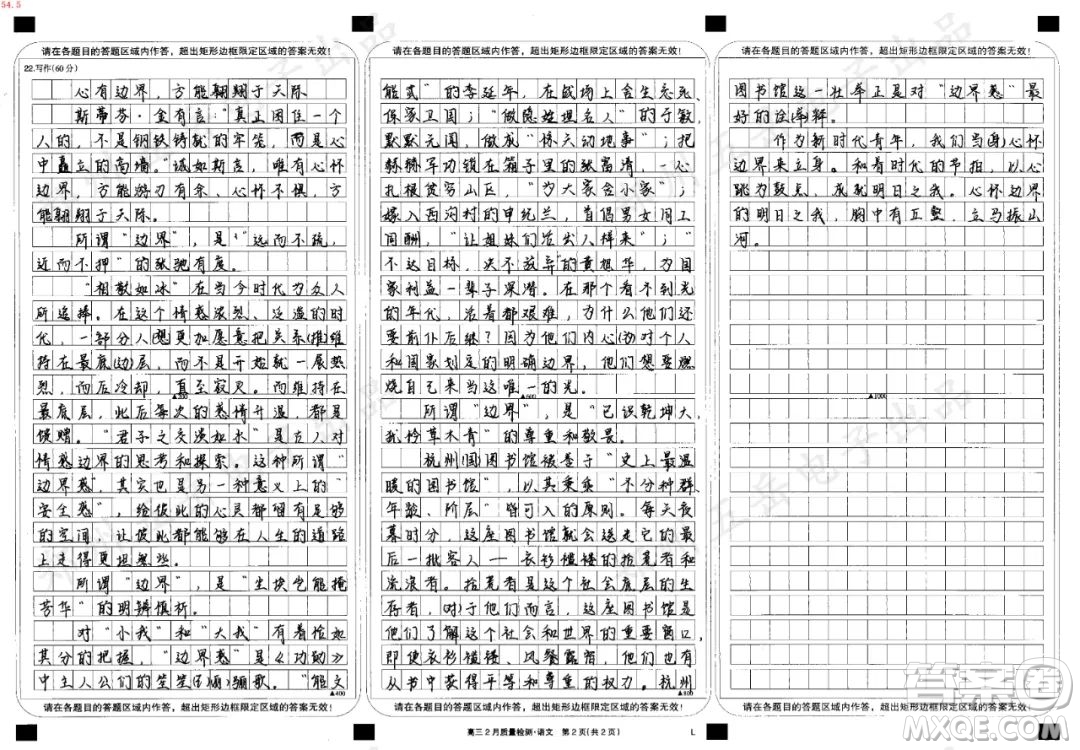 54.5
请在各题目的答题区域内作答，超出矩形边框限定区域的答案无效！
22.写作(60分)
心有边界，方能翱翔于天际
斯蒂芬·金有言："真正困住一个
人的，不是钢铁铸就的牢笼，而是心
中矗立的高墙。诚如斯言，唯有心怀
边界，方能游刃有余、心怀不惧，方
能翱翔于天际。
所谓"边界"，是"远而不疏，
近而不押"的张驰有度。
"相敬如冰"在当今时代为众人
所追捧。在这个情感浓烈、泛滥的时
代，一部分人想更加愿意把关系(推)维
持在最底(边)层，而不是开始就一展热
烈，而后冷却，直至寂灭。而维持在
最底层，此后每次的感情升温，都是
馈赠。"君子之交淡如水"是古人对
情感边界的思考和探索。这种所谓"
边界感"，其实也是另一种意义上的"
安全感"，给彼此的心灵都留有足够
的空间，让彼此都能够在人生的道路
上走得更坦然些。
所谓"边界"，是"尘埃岂能掩
芳华"的明辨慎析。
对"小我"和"大我"有着恰如
其分的把握，"边界感"是《功勋》
中主人公们的笙笙骊歌。"能文
▲400
请在各题目的答题区域内作答，超出矩形边框限定区域的答案无效！
请在各题目的答题区域内作答，超出矩形边框限定区域的答案无效！
能武"的李延年，在战场上舍生忘死、
保家卫国；"做隐姓埋名人"的于敏，
默默无闻，做成"惊天动地事"；把
赫赫军功锁在箱子里的张富清，一心
扎根贫穷山区，"为大家舍小家"；
嫁入西沟村的申纪兰，首倡男女同工
同酬，"让姐妹们活出人样来"；"
不达目标，决不放弃"的黄想华，为国
家利益一辈子深潜。在那个看不到光
的年代，活着都艰难，为什么他们还
要前仆后继？因为他们内心(为)对个人
和国家划定的明确边界，他们想要燃
烧自己来当这唯一的光。
▲600
所谓"边界"，是"已识乾坤大，
犹怜草木青"的尊重和敬畏。
杭州(国)图书馆被誉于"史上最温
暖的图书馆"，以其秉乘"不分种群、
年龄、阶层"皆可入的原则。每天夜
暮时分，这座图书馆就会送走它的最
后一批客人——衣衫褴褛的拾荒者和
流浪者。拾荒者是这个社会底层的生
存者，对于他们而言，这座图书馆是
他们了解这个社会和世界的重要窗口，
即使衣衫褴褛、风餐露宿，他们也有
从书中获得平等和尊重的权力。杭州
▲800
请在各题目的答题区域内作答，超出矩形边框限定区域的答案无效！
高三2月质量检测·语文 第2页(共2页)
请在各题目的答题区域内作答，超出矩形边框限定区域的答案无效！
图书馆这一壮举正是对"边界感"最
好的诠释。
作为新时代青年，我们当(自)心怀
边界来立身。和着时代的节拍，以心
跳为鼓点，成就明日之我。心怀边界
的明日之我，胸中有丘壑，立马振山
河。
▲1000
请在各题目的答题区域内作答，超出矩形边框限定区域的答案无效！
L
答案圈
MXQE.COM